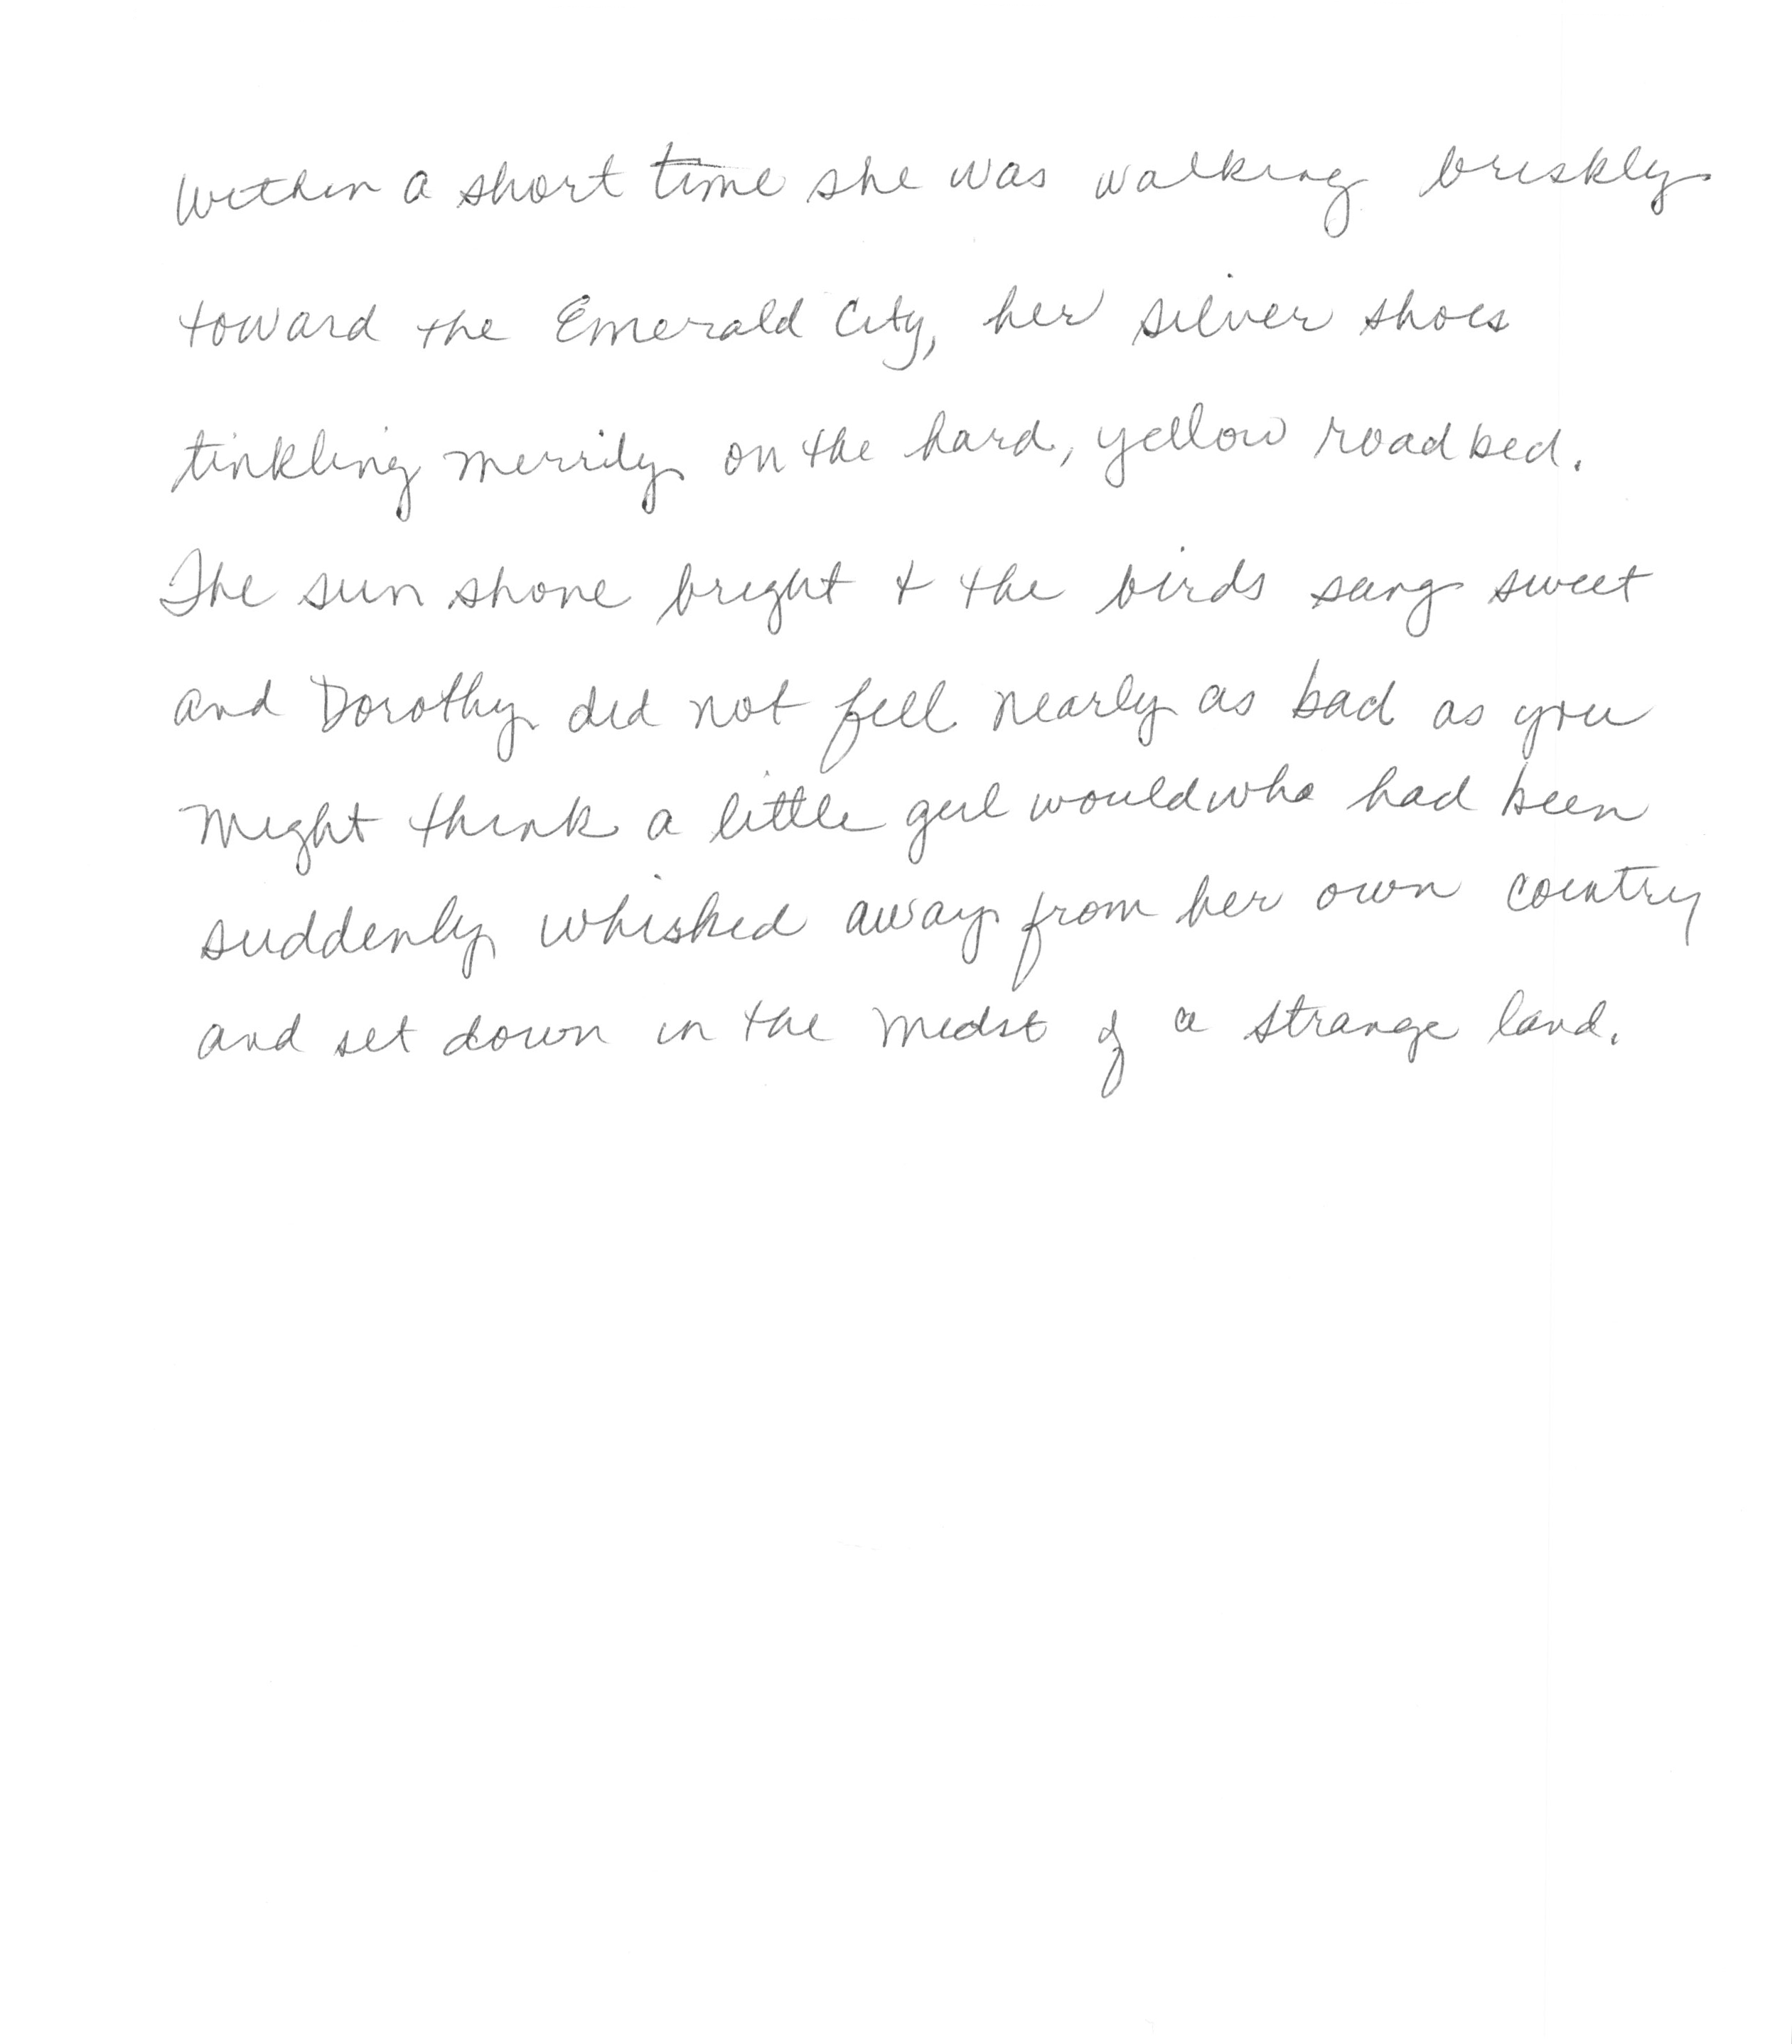 Within a short time she was walking briskly
toward the Emerald City, her silver shoes
tinkling merrily on the hard, yellow roadbed.
The sun shone bright & the birds sang sweet
and Dorothy did not feel nearly as bad as you
might think a little girl would who had been
suddenly whisked away from her own country
and set down in the midst of a strange land.